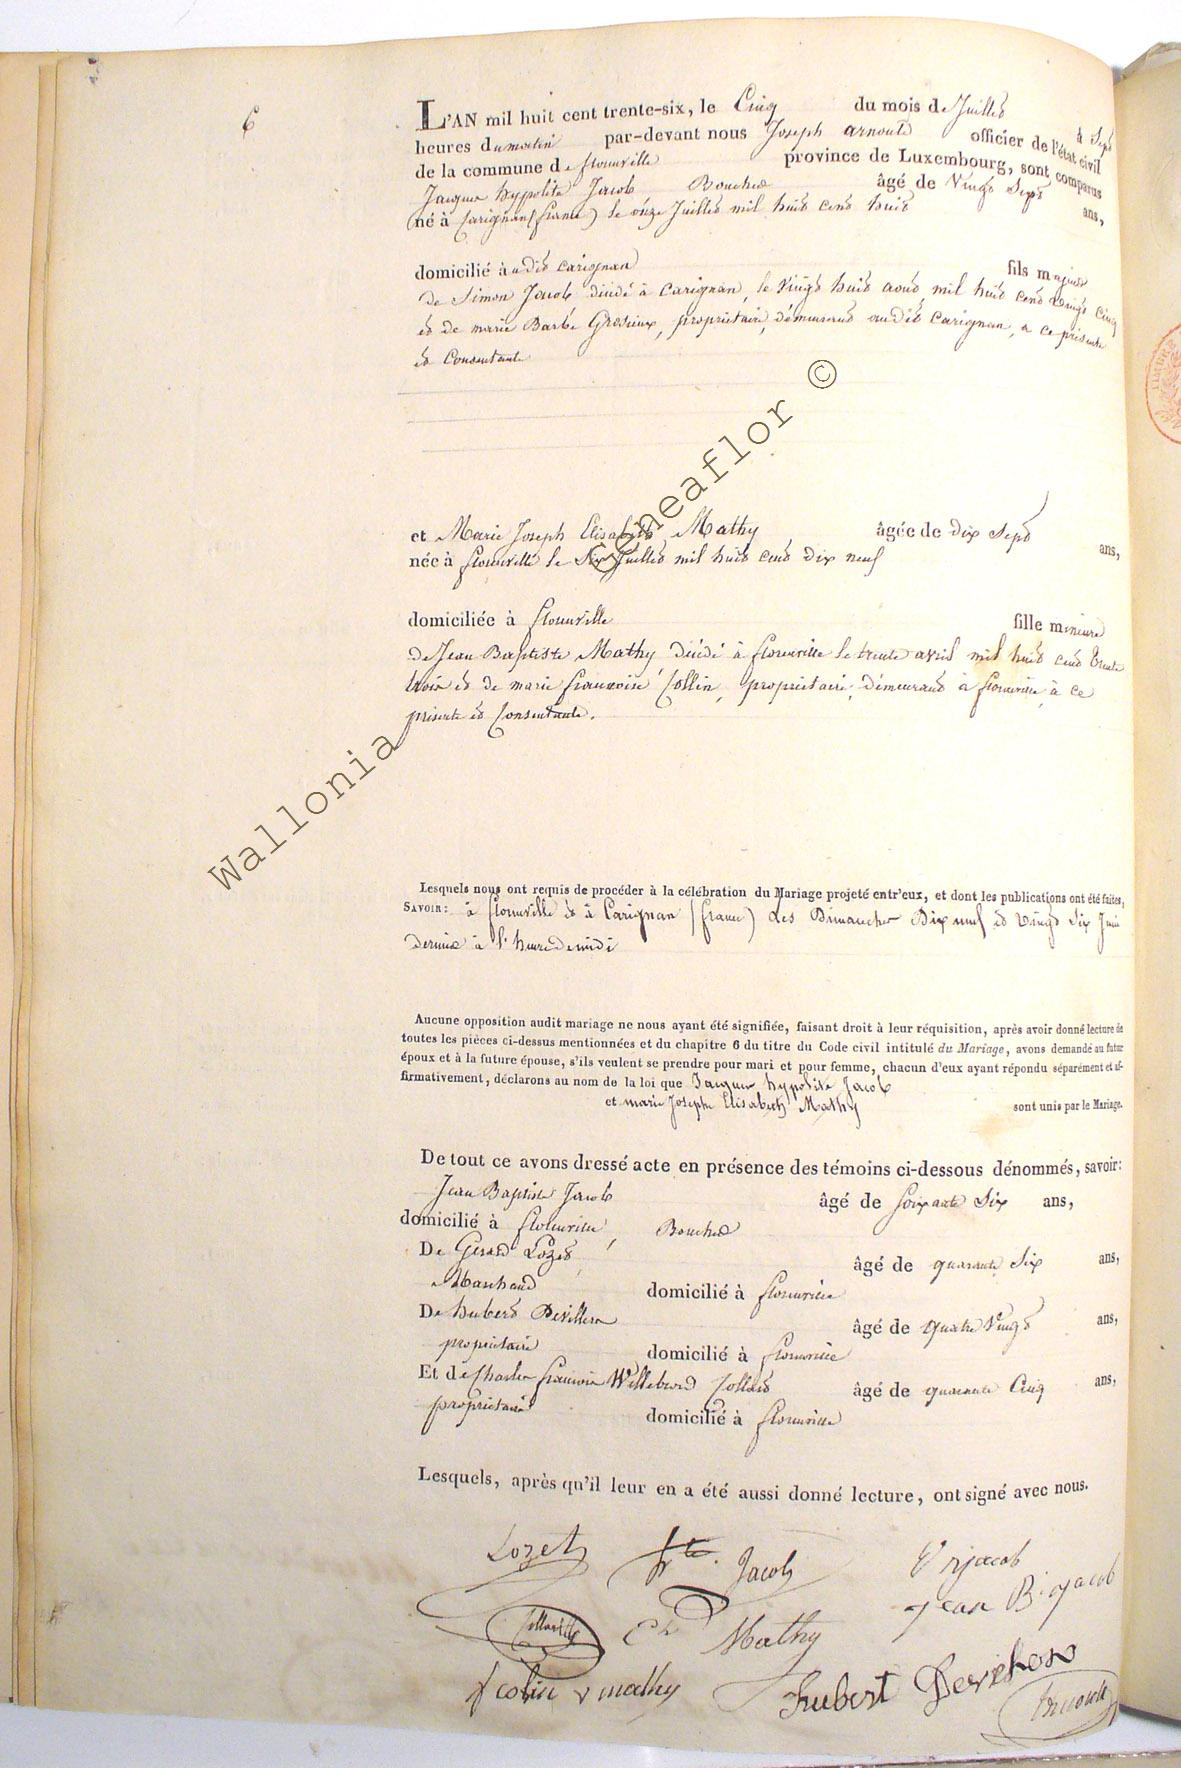 6
L'AN mil huit cent trente-six, le Cinq du mois de Juillet à Sept
heures du matin par-devant nous Joseph arnould officier de l'état civil
de la commune de florenville province de Luxembourg, sont comparus
Jacques hypolite Jacob Boucher âgé de Vingt Sept ans,
né à Carignan (france) le onze Juillet mil huit cent huit
domicilié à udit carignan fils majeur
de Simon Jacob décédé à Carignan, le vingt huit aout mil huit cent vingt cinq
et de marie Barbe Grosieux, propriétaire, démeurant audit Carignan, a ce présente
et Consentante
et Marie Joseph Elisabeth Mathy âgée de dix Sept ans,
née à florenville le Six Juillet mil huit cent dix neuf
domiciliée à florenville fille mineure
de Jean Baptiste Mathy décédé à florenville le trente avril mil huit cent trente
trois et de marie francoise Collin, propriétaire, démeurant à florenville, à ce
présente et Consentante.
Lesquels nous ont requis de procéder à la célébration du Mariage projeté entr'eux, et dont les publications ont été faites,
SAVOIR: à florenville et à Carignan (france) Les Dimanches Dix neuf et Vingt Six Juin
dernier à l'heure de midi
Aucune opposition audit mariage ne nous ayant été signifiée, faisant droit à leur réquisition, après avoir donné lecture de
toutes les pièces ci-dessus mentionnées et du chapitre 6 du titre du Code civil intitulé du Mariage, avons demandé au futur
époux et à la future épouse, s'ils veulent se prendre pour mari et pour femme, chacun d'eux ayant répondu séparément et af-
firmativement, déclarons au nom de la loi que Jacques hypolite Jacob
et marie Josephe Elisabeth Mathy sont unis par le Mariage.
De tout ce avons dressé acte en présence des témoins ci-dessous dénommés, savoir:
Jean Baptiste Jacob âgé de Soixante Six ans,
domicilié à florenville, Boucher
De Gérard Lozet, âgé de quarante Six ans,
Marchand domicilié à florenville
De hubert Devillers âgé de quatre Vingt ans,
propriétaire domicilié à florenville
Et de Charles francois Willebrord Collard âgé de quarante Cinq ans,
propriétaire domicilié à florenville
Lesquels, après qu'il leur en a été aussi donné lecture, ont signé avec nous.
Lozet hte. Jacob Jacob
Jean B. jacob
Mathy
colin v mathy hubert
Wallonia Geneaflor ©